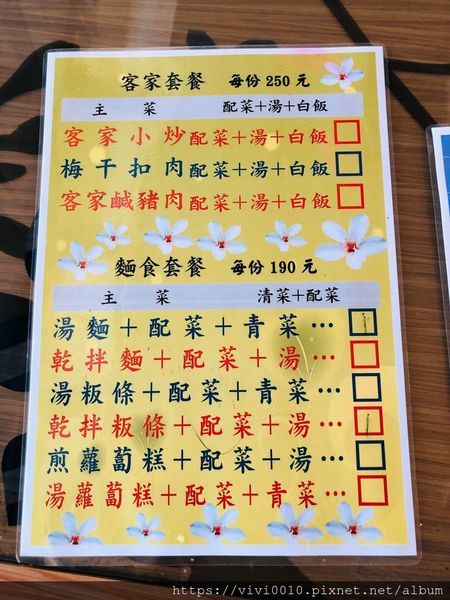 客家套餐 每份250元
主菜 配菜+湯+白飯
客家小炒配菜+湯+白飯
梅干扣肉配菜+湯+白飯
客家鹹豬肉配菜+湯+白飯
麵食套餐 每份190元
主菜 清菜+配菜
湯麵+配菜+青菜…
乾拌麵+配菜+湯…
湯粄條+配菜+青菜…
乾拌粄條+配菜+湯…
煎蘿蔔糕+配菜+湯…
湯蘿蔔糕+配菜+青菜…
https://vivi0010.pixnet.net/album